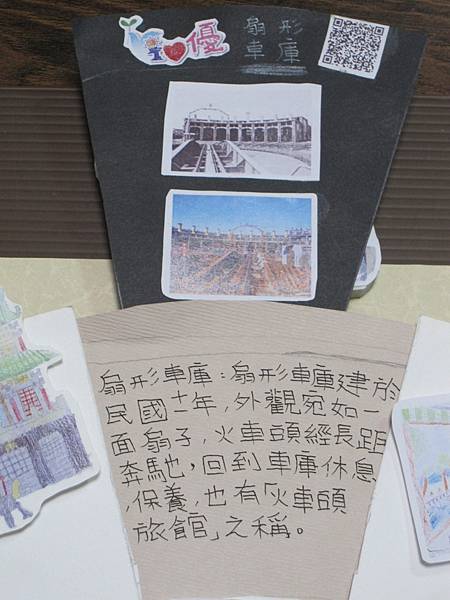 優
扇形
車庫
扇形車庫：扇形車庫建於
民國十一年，外觀宛如一
面扇子，火車頭經長距
奔馳，回到車庫休息
，保養，也有「火車頭
旅館」之稱。